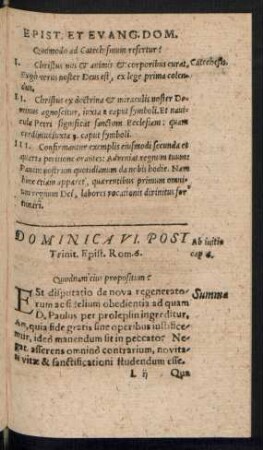 EPIST. ET EVANG. DOM.
Quomodo ad Catechismum refertur?
I. Christus nos & animis & corporibus curat,
Catechesis.
Ergò verus noster Deus est, ex lege prima colen-
dus.
II. Christus ex doctrina & miraculis noster Do-
minus agnoscitur, iuxta 2 caput symboli. Et navi-
cula Petri significat sanctam Ecclesiam: quam
credimus iuxta 3. caput symboli.
III. Confirmantur exemplis eiusmodi secunda et
quarta petitione orantes: Adveniat regnum tuum
Panem nostrum quotidianum da nobis hodie. Nam
hinc etiam apparet, quærentibus primum omni-
um regnum Dei, labores vocationis divinitus for
tunari.
DOMINICA VI. POST
Trinit. Epist. Rom. 6.
Ab initio
cap 6.
Quodnam eius propositum?
Est disputatio de nova regenerato-
Summa
rum ac fidelium obedientia ad quam
D. Paulus per prolepsin ingreditur,
An, quia fide gratis sine operibus iustifice-
mur, ideò manendum sit in peccato? Ne-
gat. asserens omninò contrarium, novita-
ti vitæ & sanctificationi studendum esse.
L ij
Qua